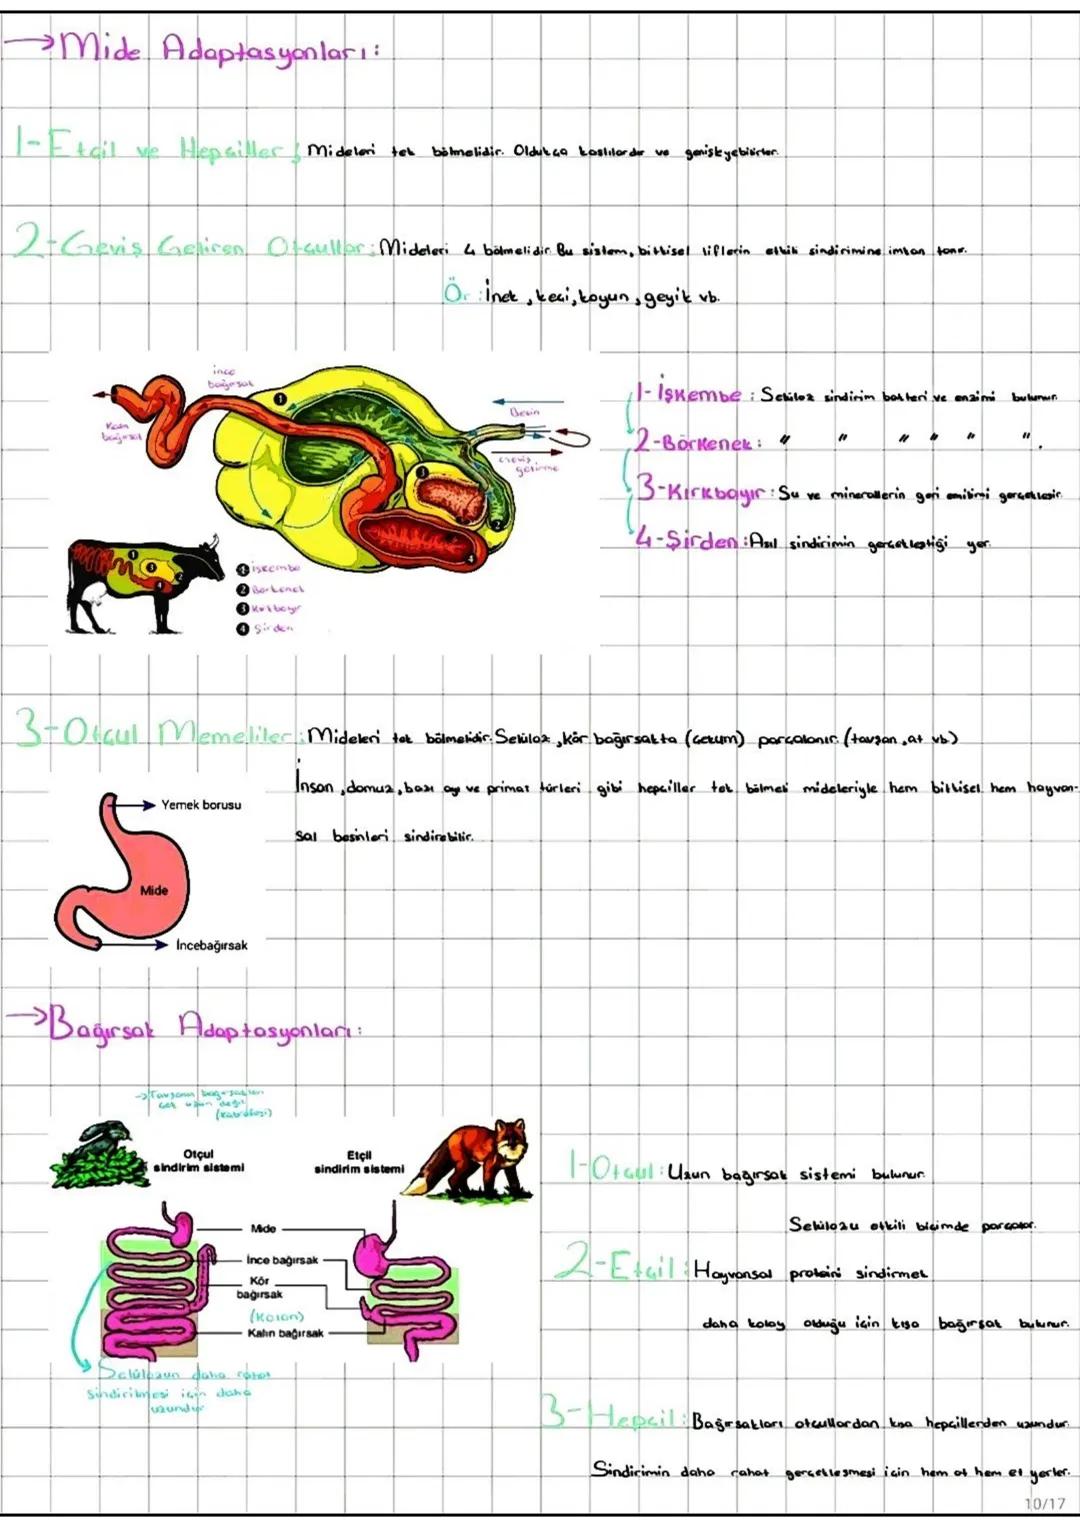 →Mide Adaptasyonları:
1-Etçil ve Hepçiller; Mideleri tek bölmelidir. Oldukça kaslılardır ve genişleyebilirler.
2-Geviş Getiren Otçullar: Mideleri 4 bölmelidir. Bu sistem, bitkisel liflerin etkili sindirimine imkan tanır.
Ör: İnek, keçi, koyun, geyik vb.
ince
bağırsak
Kalın
bağırsak
Besin
Geviş
getirme
1 işkembe
2 Börkenek
3 Kırkbayır
4 Şirden
1-İşkembe: Selüloz sindirim bakteri ve enzimi bulunur.
2-Börkenek: " " " " " ".
3-Kırkbayır: Su ve minerallerin geri emilimi gerçekleşir.
4-Şirden: Asıl sindirimin gerçekleştiği yer.
3-Otçul Memeliler: Mideleri tek bölmelidir. Selüloz, kör bağırsakta (çekum) parçalanır. (tavşan, at vb.)
İnsan, domuz, bazı ayı ve primat türleri gibi hepçiller tek bölmeli mideleriyle hem bitkisel hem hayvan-
sal besinleri sindirebilir.
Yemek borusu
Mide
İncebağırsak
→Bağırsak Adaptasyonları:
→Tavşanın bağırsakları
çok uzun değil
Otçul
sindirim sistemi
Etçil
sindirim sistemi
Mide
İnce bağırsak
Kör
bağırsak
(Kolon)
Kalın bağırsak
Selülozun daha rahat
sindirilmesi için daha
uzundur
1-Otçul: Uzun bağırsak sistemi bulunur.
Selülozu etkili biçimde parçalar.
2-Etçil: Hayvansal proteini sindirmek
daha kolay olduğu için kısa bağırsak bulunur.
3-Hepçil: Bağırsakları otçullardan kısa hepçillerden uzundur.
Sindirimin daha rahat gerçekleşmesi için hem ot hem et yerler.
10/17